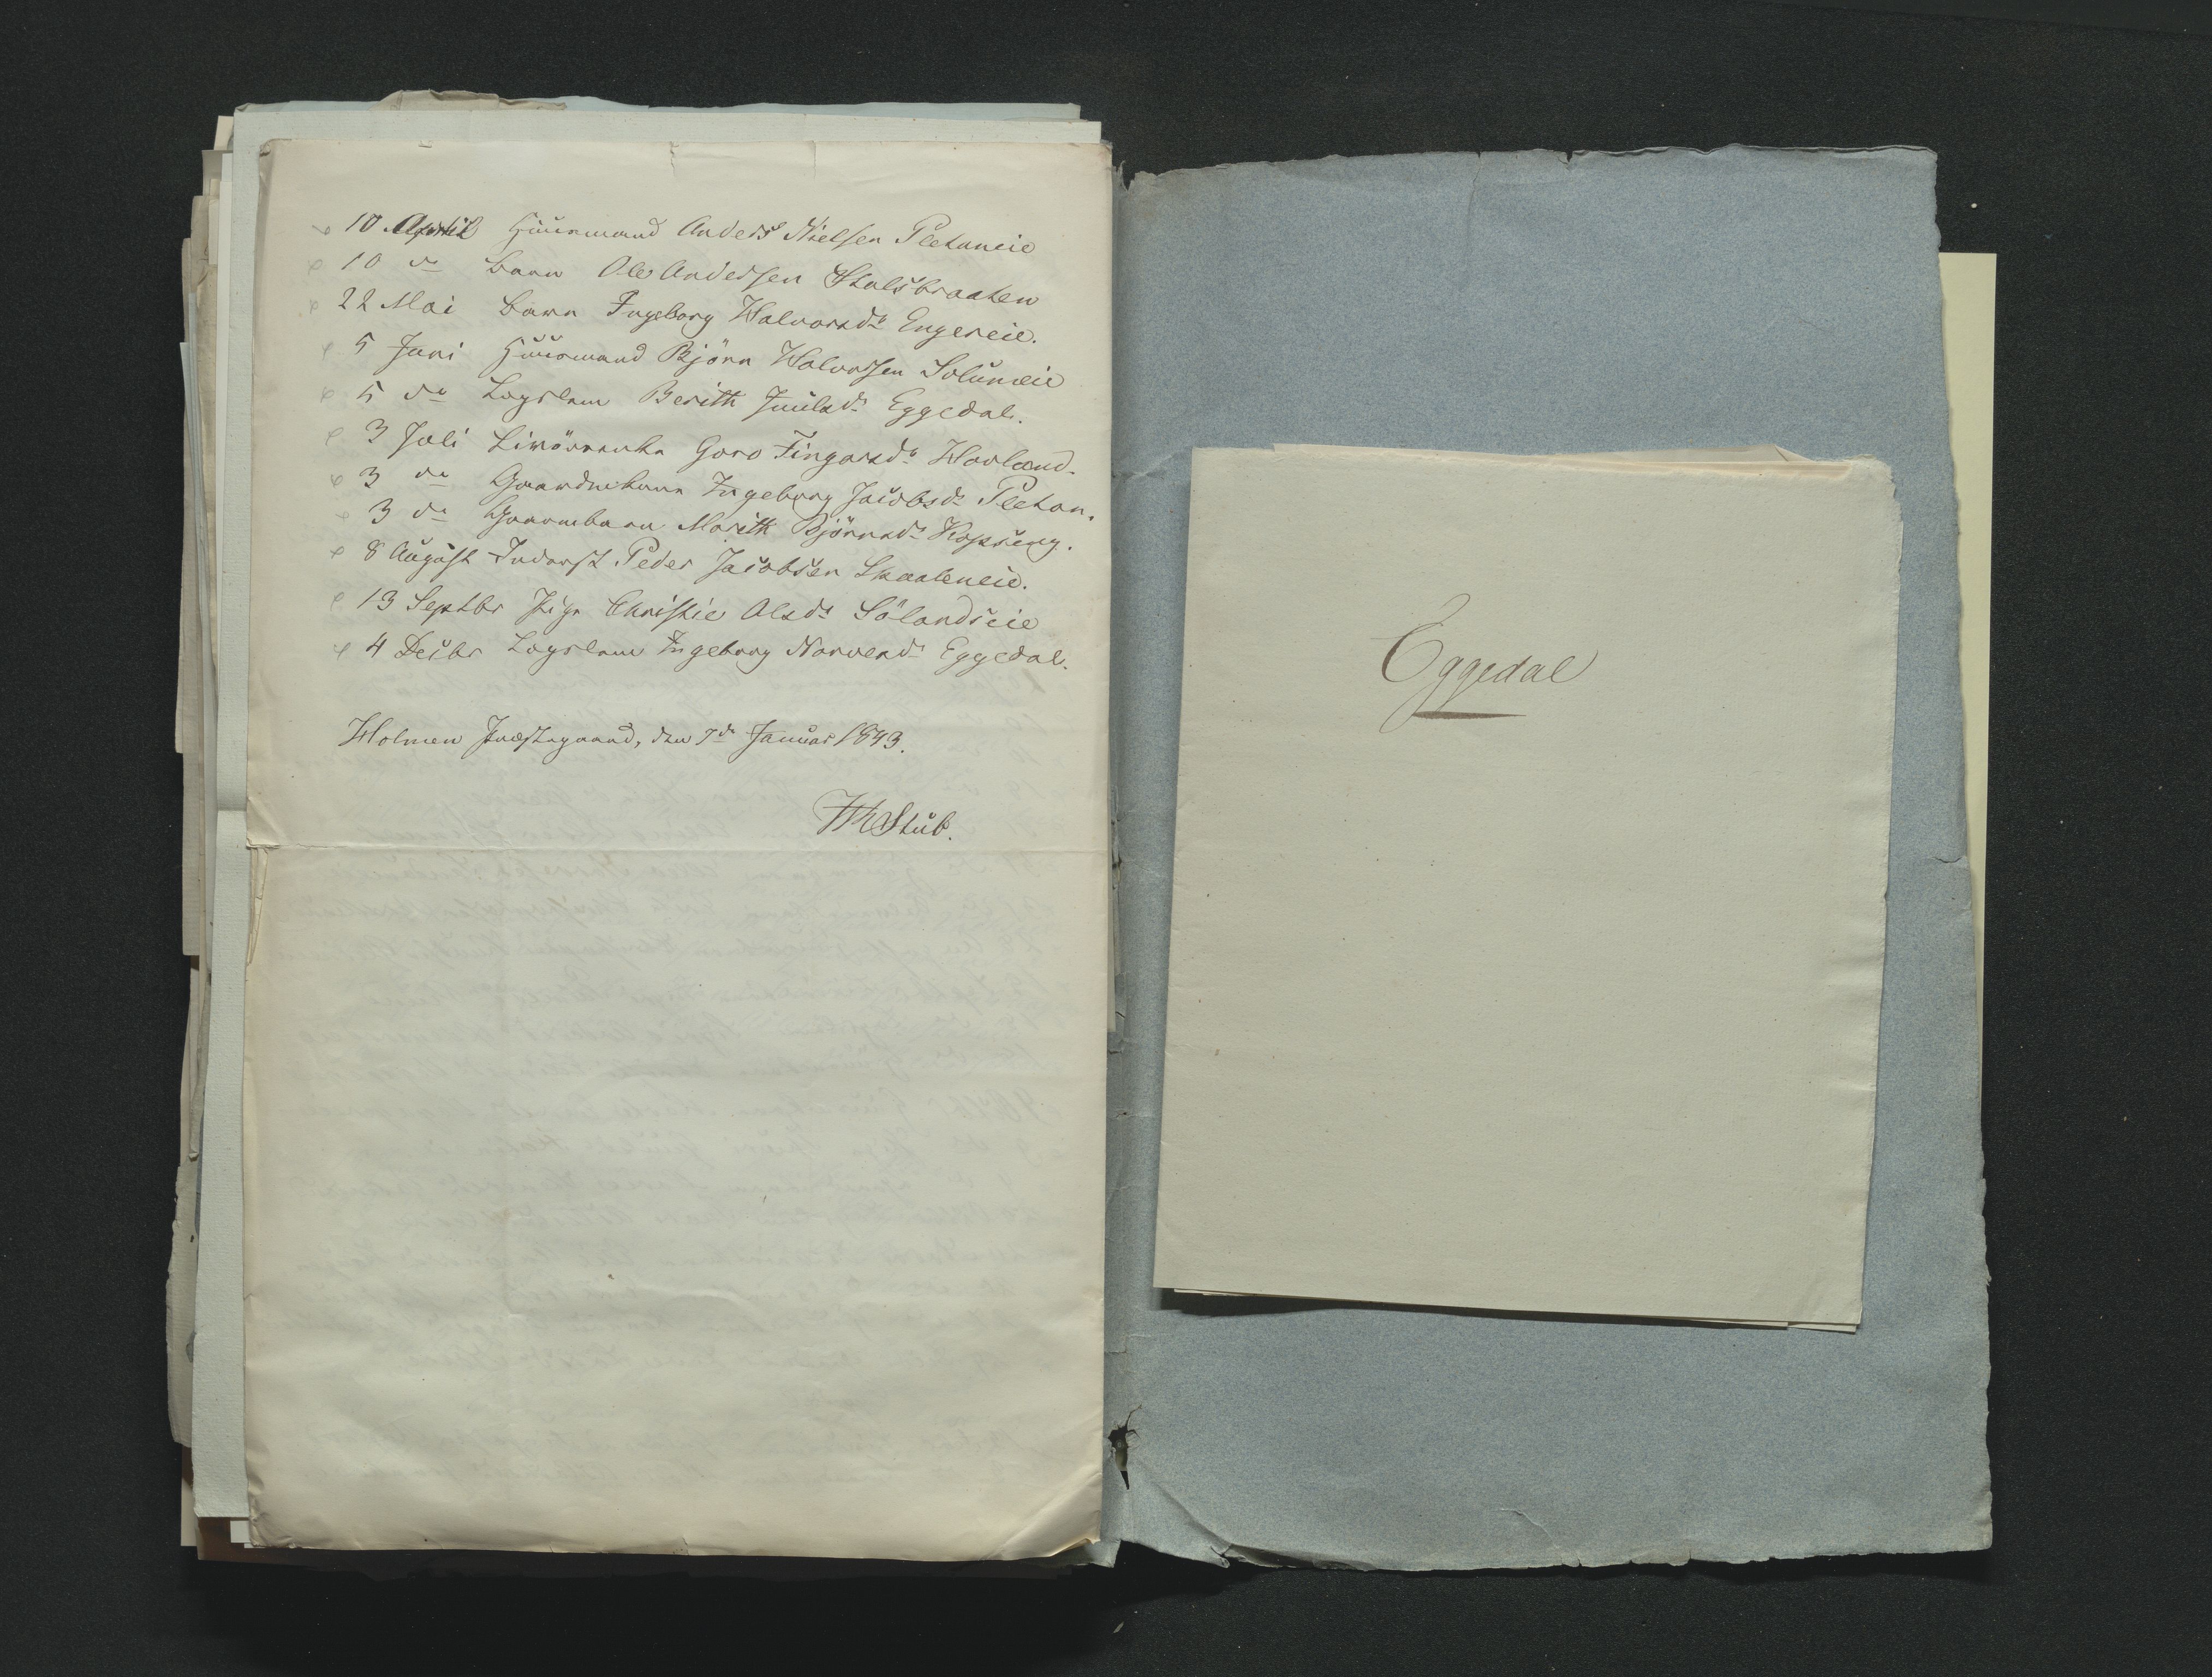 10 April Huusmand Anders Nielsen Pletaneie
10 do Barn Ole Andersen Stalsbraaten
22 Mai Barn Ingeborg Halvorsdr Engereie.
5 Juni Huusmand Björn Halvorsen Solumeie
5 do Lægslem Berith Juulsdr Eggedal.
3 Juli Livörenke Goro Tingarsdr Hovland.
3 do Gaardmbarn Ingeborg Jacobsdr Pletan.
3 do Gaarmbarn Marith Björnsdr Kopseng.
8 August Inderst Peder Jacobsen Skaaleneie.
13 Septbr Pige Christie Olsdr Sölandseie
4 Decbr Lægslem Ingeborg Narvesdr Eggedal.
Holmen Præstegaard, den 7de Januar 1843.
Stub.
Eggedal